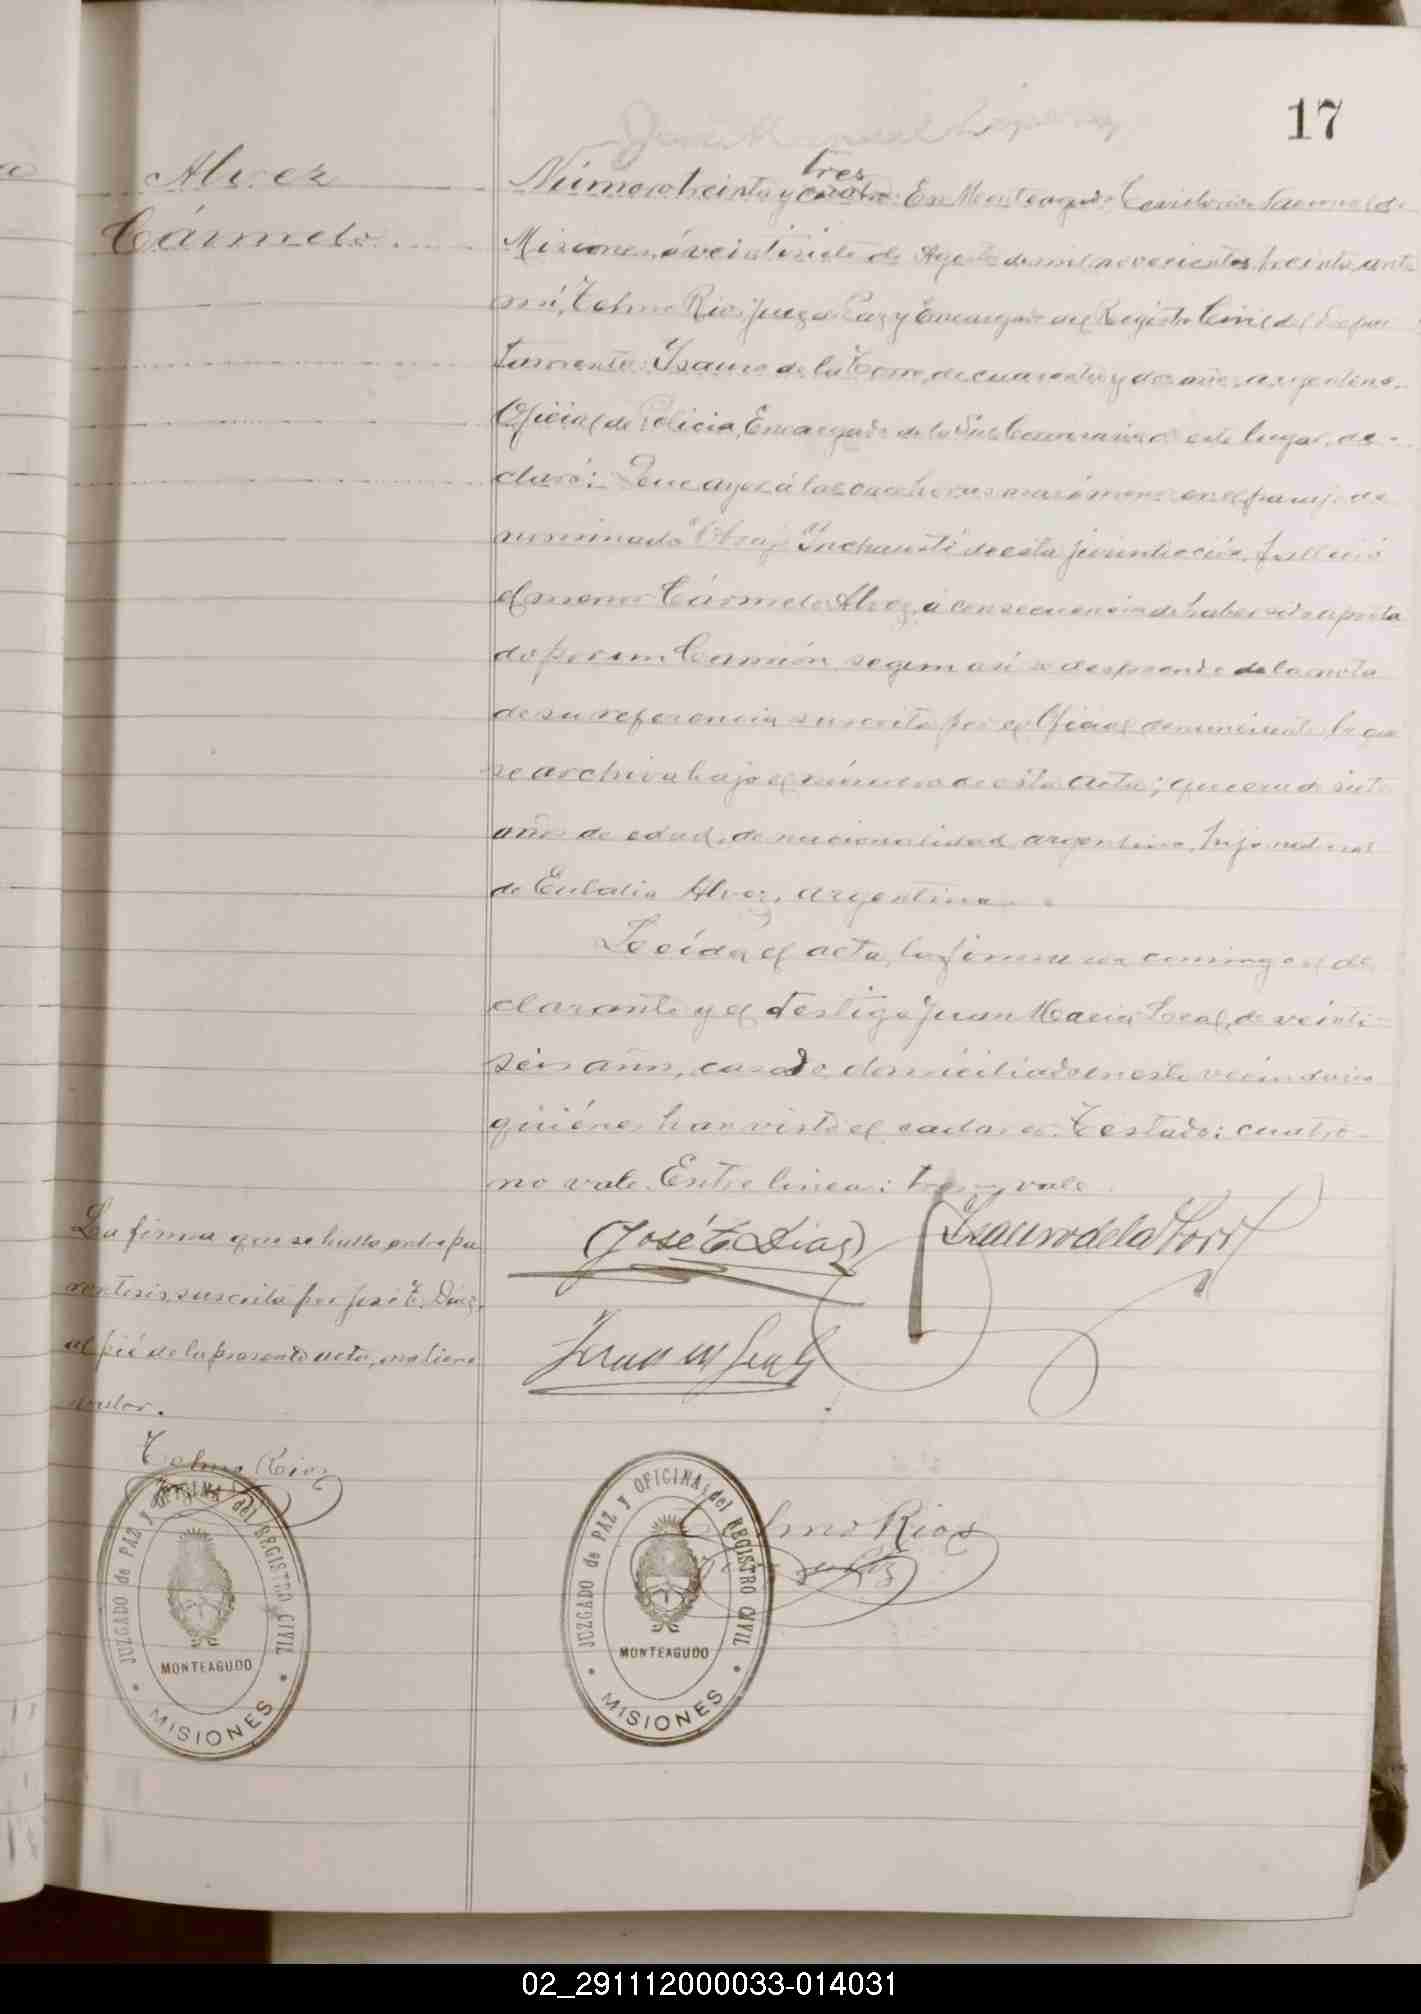 17
Alvez
Cármelo
tres
Número treinta y cuatro: En Monteagudo, Territorio Nacional de
Misiones, á veintisiete de Agosto de mil novecientos treinta, ante
mí, Telmo Rios, Juez de Paz y Encargado del Registro Civil del Depar
tamento: Isauro de la Torre, de cuarenta y dos años, argentino,
Oficial de Policia, Encargado de la Sub Comisaria de este lugar, de-
claró: Que ayer á las once horas mas ó menos en el paraje de
nominado "Obraje Inchausti" de esta jurisdicción, falleció
el menor Cármelo Alvez, á consecuencia de haber sido apreta
do por un Camión, segun así se desprende de la nota
de su referencia suscrita por el Oficial denunciante, la que
se archiva bajo el número de esta acta; que era de siete
años de edad, de nacionalidad argentina, hijo natural
de Eulalia Alvez, argentina.
Leída el acta, la firman con conmigo el de
clarante y el testigo Juan Maria Leal, de veinti-
seis años, casado, domiciliado en este vecindario
quiénes han visto el cadaver. Testado: cuatro-
no vale. Entre lineas: tres, vale.
La firma que se halla entre pa
rentesis, suscrita por José T. Diaz,
al pié de la presente acta, no tiene
valor.
Telmo Rios
(José T. Diaz)
Isauro de la Torre
Juan M Leal
Telmo Rios
JUZGADO de PAZ y OFICINA del REGISTRO CIVIL
MONTEAGUDO
MISIONES
JUZGADO de PAZ y OFICINA del REGISTRO CIVIL
MONTEAGUDO
MISIONES
02_291112000033-014031